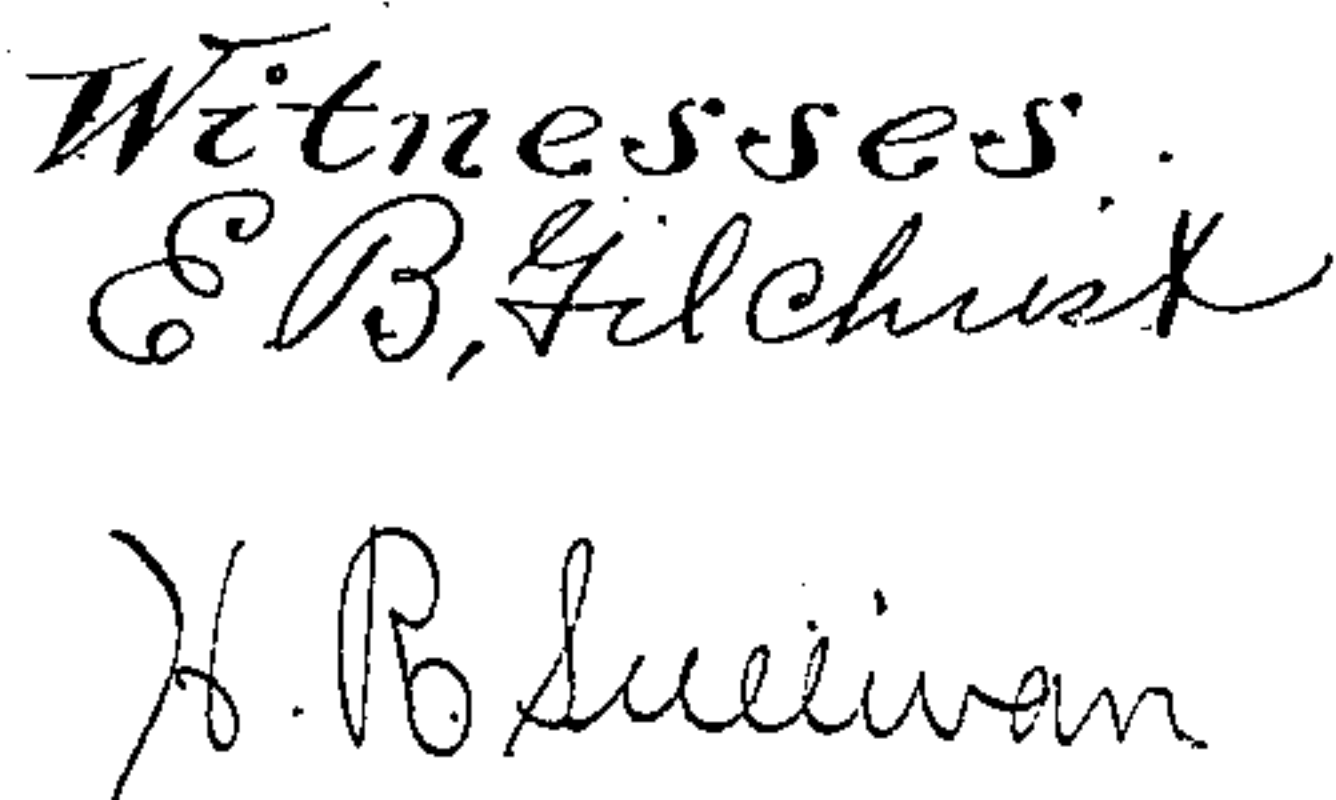 Witnesses.
E B, Gilchrist
H. R. Sullivan